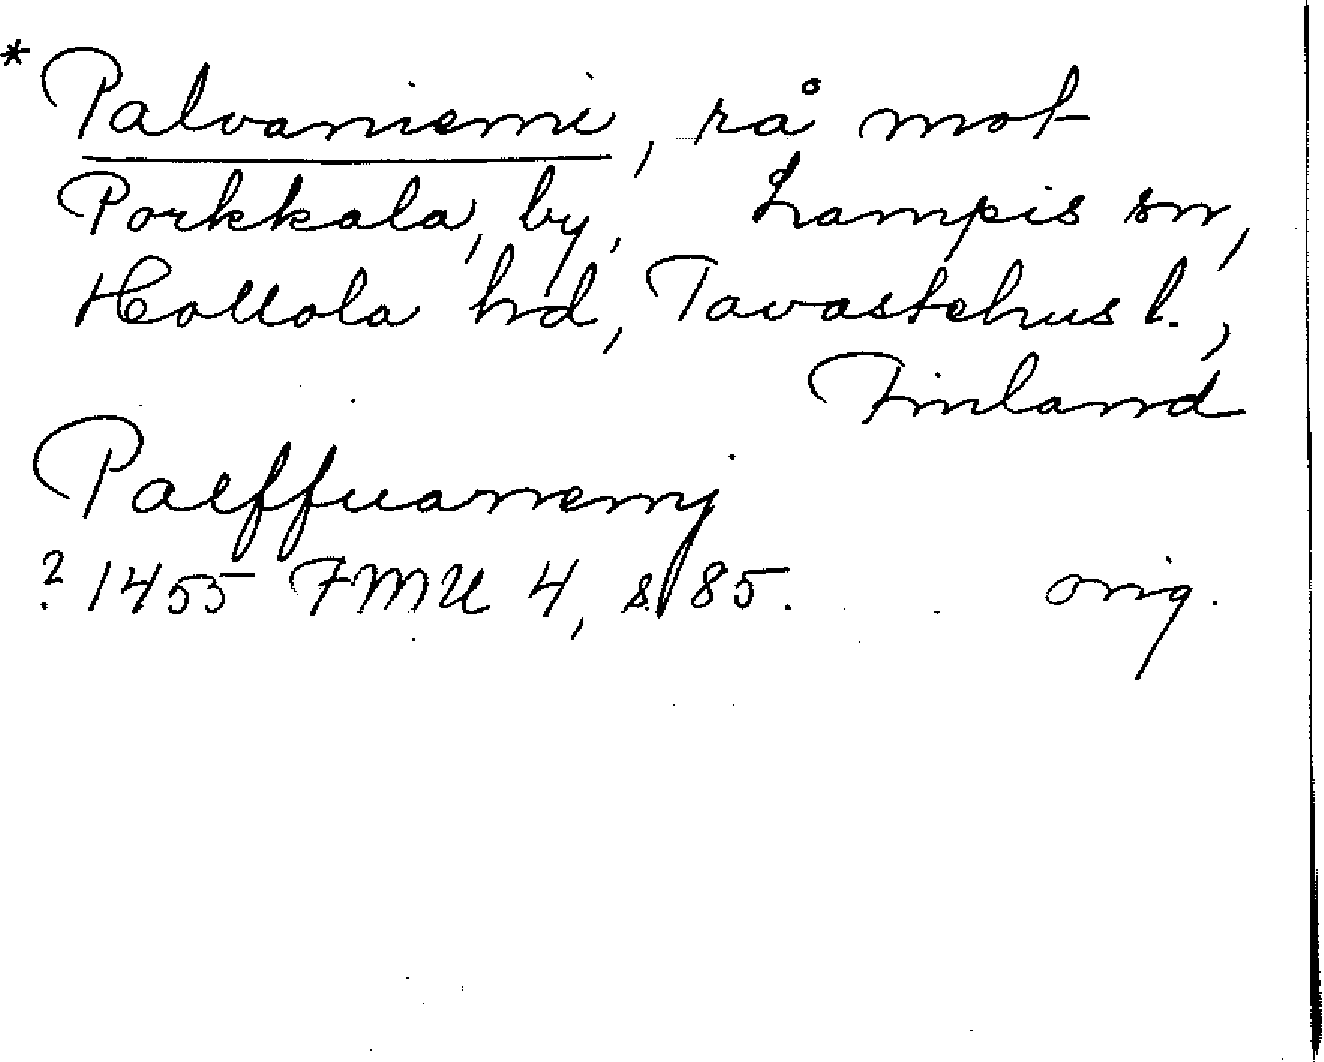 * Palvaniemi, rå mot
Porkkala, by, Lampis sn,
Hollola hd, Tavastehus l.,
Finland
Paeffuanemj
? 1455 FMU 4, s. 85. orig.